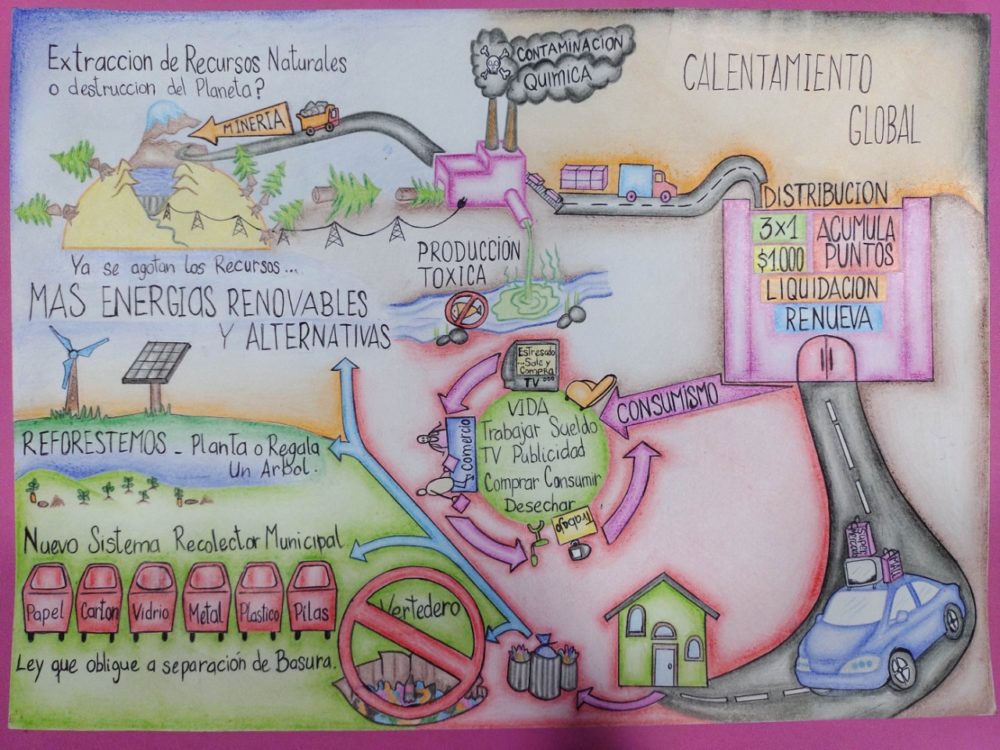 Extraccion de Recursos Naturales
o destruccion del Planeta?
MINERIA
CONTAMINACION
QUIMICA
CALENTAMIENTO
GLOBAL
DISTRIBUCION
3x1
$1.000
ACUMULA
PUNTOS
LIQUIDACION
RENUEVA
PRODUCCION
TOXICA
Ya se agotan los Recursos...
MAS ENERGIAS RENOVABLES
Y ALTERNATIVAS
Estresado
...Sale y
Compra
TV
CONSUMISMO
VIDA
Trabajar Sueldo
TV Publicidad
Comprar Consumir
Desechar
Comercio
Trabajo
REFORESTEMOS - Planta o Regala
Un Arbol.
Nuevo Sistema Recolector Municipal
Papel
Carton
Vidrio
Metal
Plastico
Pilas
Vertedero
Ley que obligue a separación de Basura.